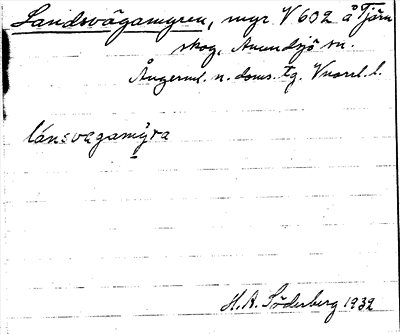 Landsvägamyren, myr. V 602 å Tjärn
skog, Anundsjö sn.
Ångerml. n. doms. tg. Vnorrl. l.
länsvagamy̠ra
H. A. Söderberg 1932